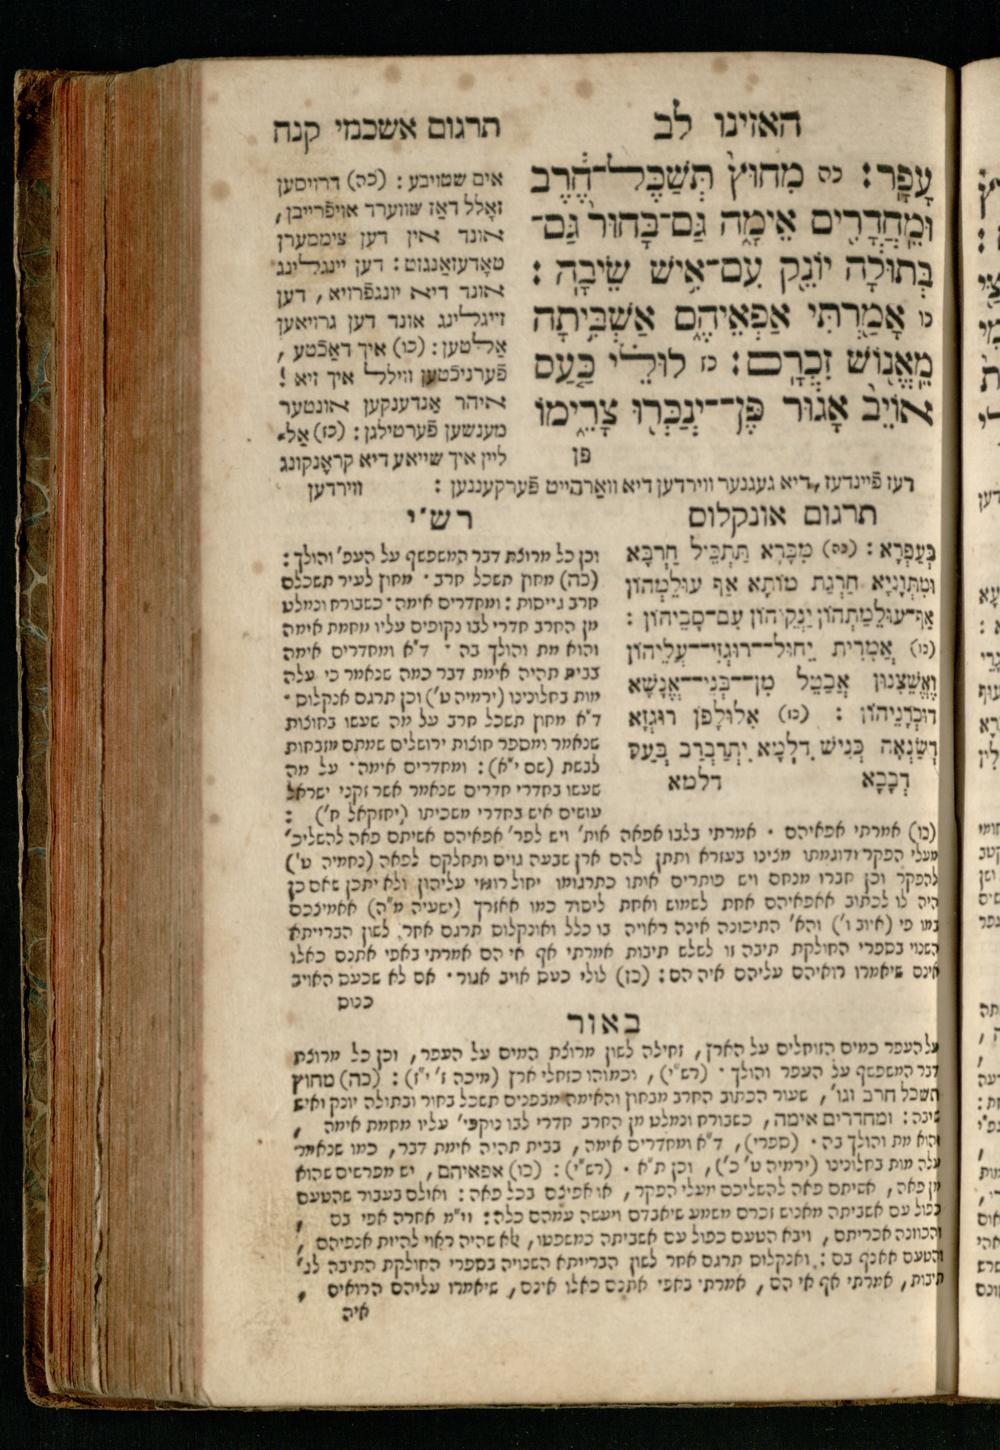 האזינו לב
תרגום אשכמי קנח
עָפָֽר׃ כה מִחוּץ֙ תְּשַׁכֶּל־חֶ֔רֶב
וּמֵחֲדָרִ֖ים אֵימָ֑ה גַּם־בָּחוּר֙ גַּם־
בְּתוּלָ֔ה יוֹנֵ֖ק עִם־אִ֥ישׁ שֵׂיבָֽה׃
כו אָמַ֖רְתִּי אַפְאֵיהֶ֑ם אַשְׁבִּ֥יתָה
מֵאֱנ֖וֹשׁ זִכְרָֽם׃ כז לוּלֵ֗י כַּ֤עַס
אוֹיֵב֙ אָג֔וּר פֶּֽן־יְנַכְּר֖וּ צָרֵ֑ימוֹ
פן
אים שטויבע : (כה) דרויסען
זאָלל דאַז שווערד אויפֿרייבן,
אונד אין דען ציממערן
טאָדעזאַנגזט : דען יינגלינג
אונד דיא יונגפֿרויא, דען
זייגלינג אונד דען גרויאען
אַלטען : (כו) איך דאַכֿטע,
פֿערניכֿטען ווילל איך זיא !
איהר אַנדענקען אונטער
מענשען פֿערטילגן : (כז) אַל־
ליין איך שייאע דיא קראָנקונג
דעז פֿיינדעז, דיא געגנער ווירדען דיא וואַרהייט פֿערקעננען : ווירדען
תרגום אונקלוס
בְּעַפְרָא : (כה) מִבָּרָא תַּתְכֵּיל חַרְבָּא
וּמִתְּוָנַיָּא חַרְגַּת מוֹתָא אַף עוּלֵמְהוֹן
אַף־עוּלֵמַתְהוֹן יַנְקֵיהוֹן עִם־סָבֵיהוֹן :
(כו) אֲמָרִית יֵחוּל־רוּגְזִי־עֲלֵיהוֹן
וֶאֱשֵׁצִנּוּן אֲבַטֵּל מִן־בְּנֵי־אֱנָשָׁא
דּוּכְרָנֵיהוֹן : (כז) אִלּוּלָפוֹן רוּגְזָא
דְּסַנְאָה כְּנִישׁ דִּלְמָא יִתְרַבְרַב בְּעֵל
דְּבָבָא דלמא
רש״י
וכן כל מרוצת דבר המשפשף על העפ׳ והולך :
(כה) מחוץ תשכל חרב · מחוץ לעיר תשכלם
חרב גייסות : ומחדרים אימה · כשבורח ונמלט
מן החרב חדרי לבו נקופים עליו מחמת אימה
והוא מת והולך בה · ד״א ומחדרים אימה
בבית תהיה אימת דבר כמה שנאמר כי עלה
מות בחלונינו (ירמיה ט׳) וכן תרגם אנקלוס ·
ד״א מחוץ תשכל חרב על מה שעשו בחוצות
שנאמר ומספר חוצות ירושלים שמתם מזבחות
לבשת (שם י״א) : ומחדרים אימה · על מה
שעשו בחדרי חדרים שנאמר אשר זקני ישראל
עושים איש בחדרי משכיתו (יחזקאל ח׳) :
(כו) אמרתי אפאיהם · אמרתי בלבו אפאה אות׳ ויש לפר׳ אפאיהם אשיתם פאה להשליכ׳
מעלי הפקר ודוגמתו מצינו בעזרא ותתן להם ארץ שבעה גוים ותחלקם לפאה (נחמיה ט׳)
להפקר וכן חברו מנחם ויש פותרים אותו כתרגומו יחול רוגזי עליהון ולא יתכן שאם כן
היה לו לכתוב אאפאיהם אחת לשמוש ואחת ליסוד כמו אאזרך (ישעיה מ״ה) אאמיצכם
במו פי (איוב ו׳) והא׳ התיכונה אינה ראויה בו כלל ואונקלוס תרגם אחר לשון הברייתא
השנוי בספרי החולקת תיבה זו לשלש תיבות אמרתי אף אי הם אמרתי באפי אתנם כאלו
אינם שיאמרו רואיהם עליהם איה הם : (כז) לולי כעס אויב אגור · אם לא שכעס האויב
כנוס
באור
על העפר כמים הזוחלים על הארץ, זחילה לשון מרוצת המים על העפר, וכן כל מרוצת
דבר המשפשף על העפר והולך · (רש״י), וכמוהו כזחלי ארץ (מיכה ז׳ י״ז) : (כה) מחוץ
תשכל חרב וגו׳, שעור הכתוב החרב מבחוץ והאימה מבפנים תשכל בחור ובתולה יונק ואיש
שיבה : ומחדרים אימה, כשבורח ונמלט מן החרב חדרי לבו נוקפי׳ עליו מחמת אימה,
והוא מת והולך בה · (ספרי), ד״א ומחדרים אימה, בבית תהיה אימת דבר, כמו שנאמר
עלה מות בחלונינו (ירמיה ט׳ כ׳), וכן ת״א · (רש״י) : (כו) אפאיהם, יש מפרשים שהוא
מן פאה, אשיתם פאה להשליכם מעלי הפקר, או אפיצם בכל פאה : ואולם בעבור שהטעם
כפול עם אשביתה מאנוש זכרם משמע שיאבדם ויעשה עמהם כלה : וי״מ אחרה אפי בם,
והכוונה אכריתם, ויבא הטעם כפול עם אשביתה כמשפטו, לא שהיה ראוי להיות אנפיהם,
והטעם אאנף בם : ואנקלוס תרגם אחר לשון הברייתא השנויה בספרי החולקת התיבה לג׳
תיבות, אמרתי אף אי הם, אמרתי באפי אתנם כאלו אינם, שיאמרו עליהם הרואים,
איה